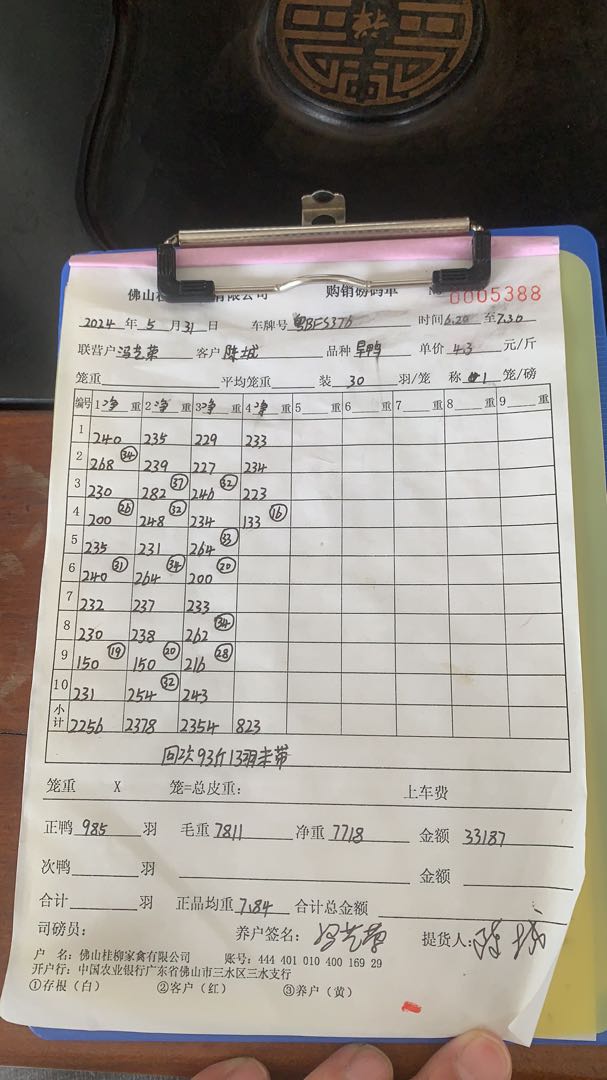 佛山桂 有限公司 购销磅码单 No 0005388
2024 年 5 月 31 日 车牌号 粤BFS376 时间 6.20 至 7.30
联营户 冯芝荣 客户 陈城 品种 旱鸭 单价 4.3 元/斤
笼重 平均笼重 装 30 羽/笼 称 1 笼/磅
编号 1 净 重 2 净 重 3 净 重 4 净 重 5 重 6 重 7 重 8 重 9 重
1 240 235 229 233
2 268 (34) 239 227 234
3 230 282 (37) 246 (32) 223
4 200 (26) 248 (32) 234 133 (16)
5 235 231 264 (33)
6 240 (31) 264 (34) 200 (20)
7 232 237 233
8 230 238 262 (34)
9 150 (19) 150 (20) 216 (28)
10 231 254 (32) 243
小计 2256 2378 2354 823
回次93斤13羽未带
笼重 X 笼=总皮重: 上车费
正鸭 985 羽 毛重 7811 净重 7718 金额 33187
次鸭 羽 金额
合计 羽 正品均重 7.84 合计总金额
司磅员: 养户签名: 冯芝荣 提货人: 陈城
户 名: 佛山桂柳家禽有限公司 账号: 444 401 010 400 169 29
开户行: 中国农业银行广东省佛山市三水区三水支行
①存根（白） ②客户（红） ③养户（黄）